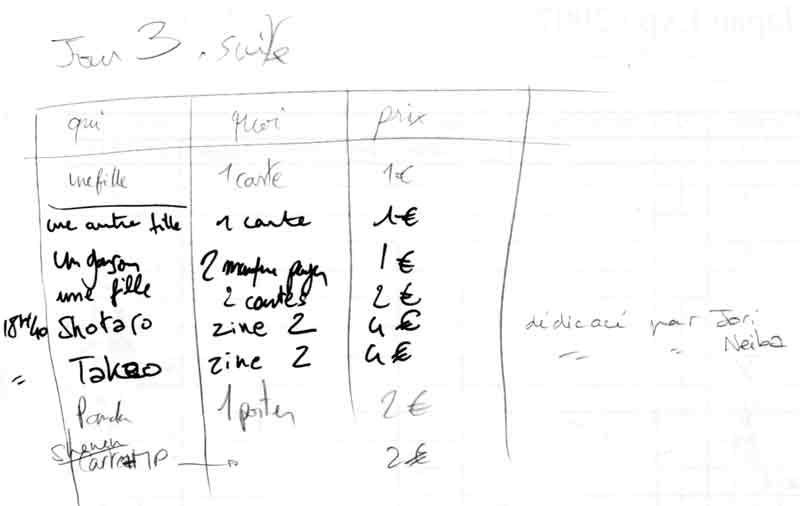 Jour 3. suite
qui quoi prix
une fille 1 carte 1€
une autre fille 1 carte 1€
Un garçon 2 1€
une fille 2 cartes 2€
18H40 Shotaro zine 2 4€ dédicacé par Jori
" Takeo zine 2 4€ " " Neiba
Panda 1 poster 2€
2€